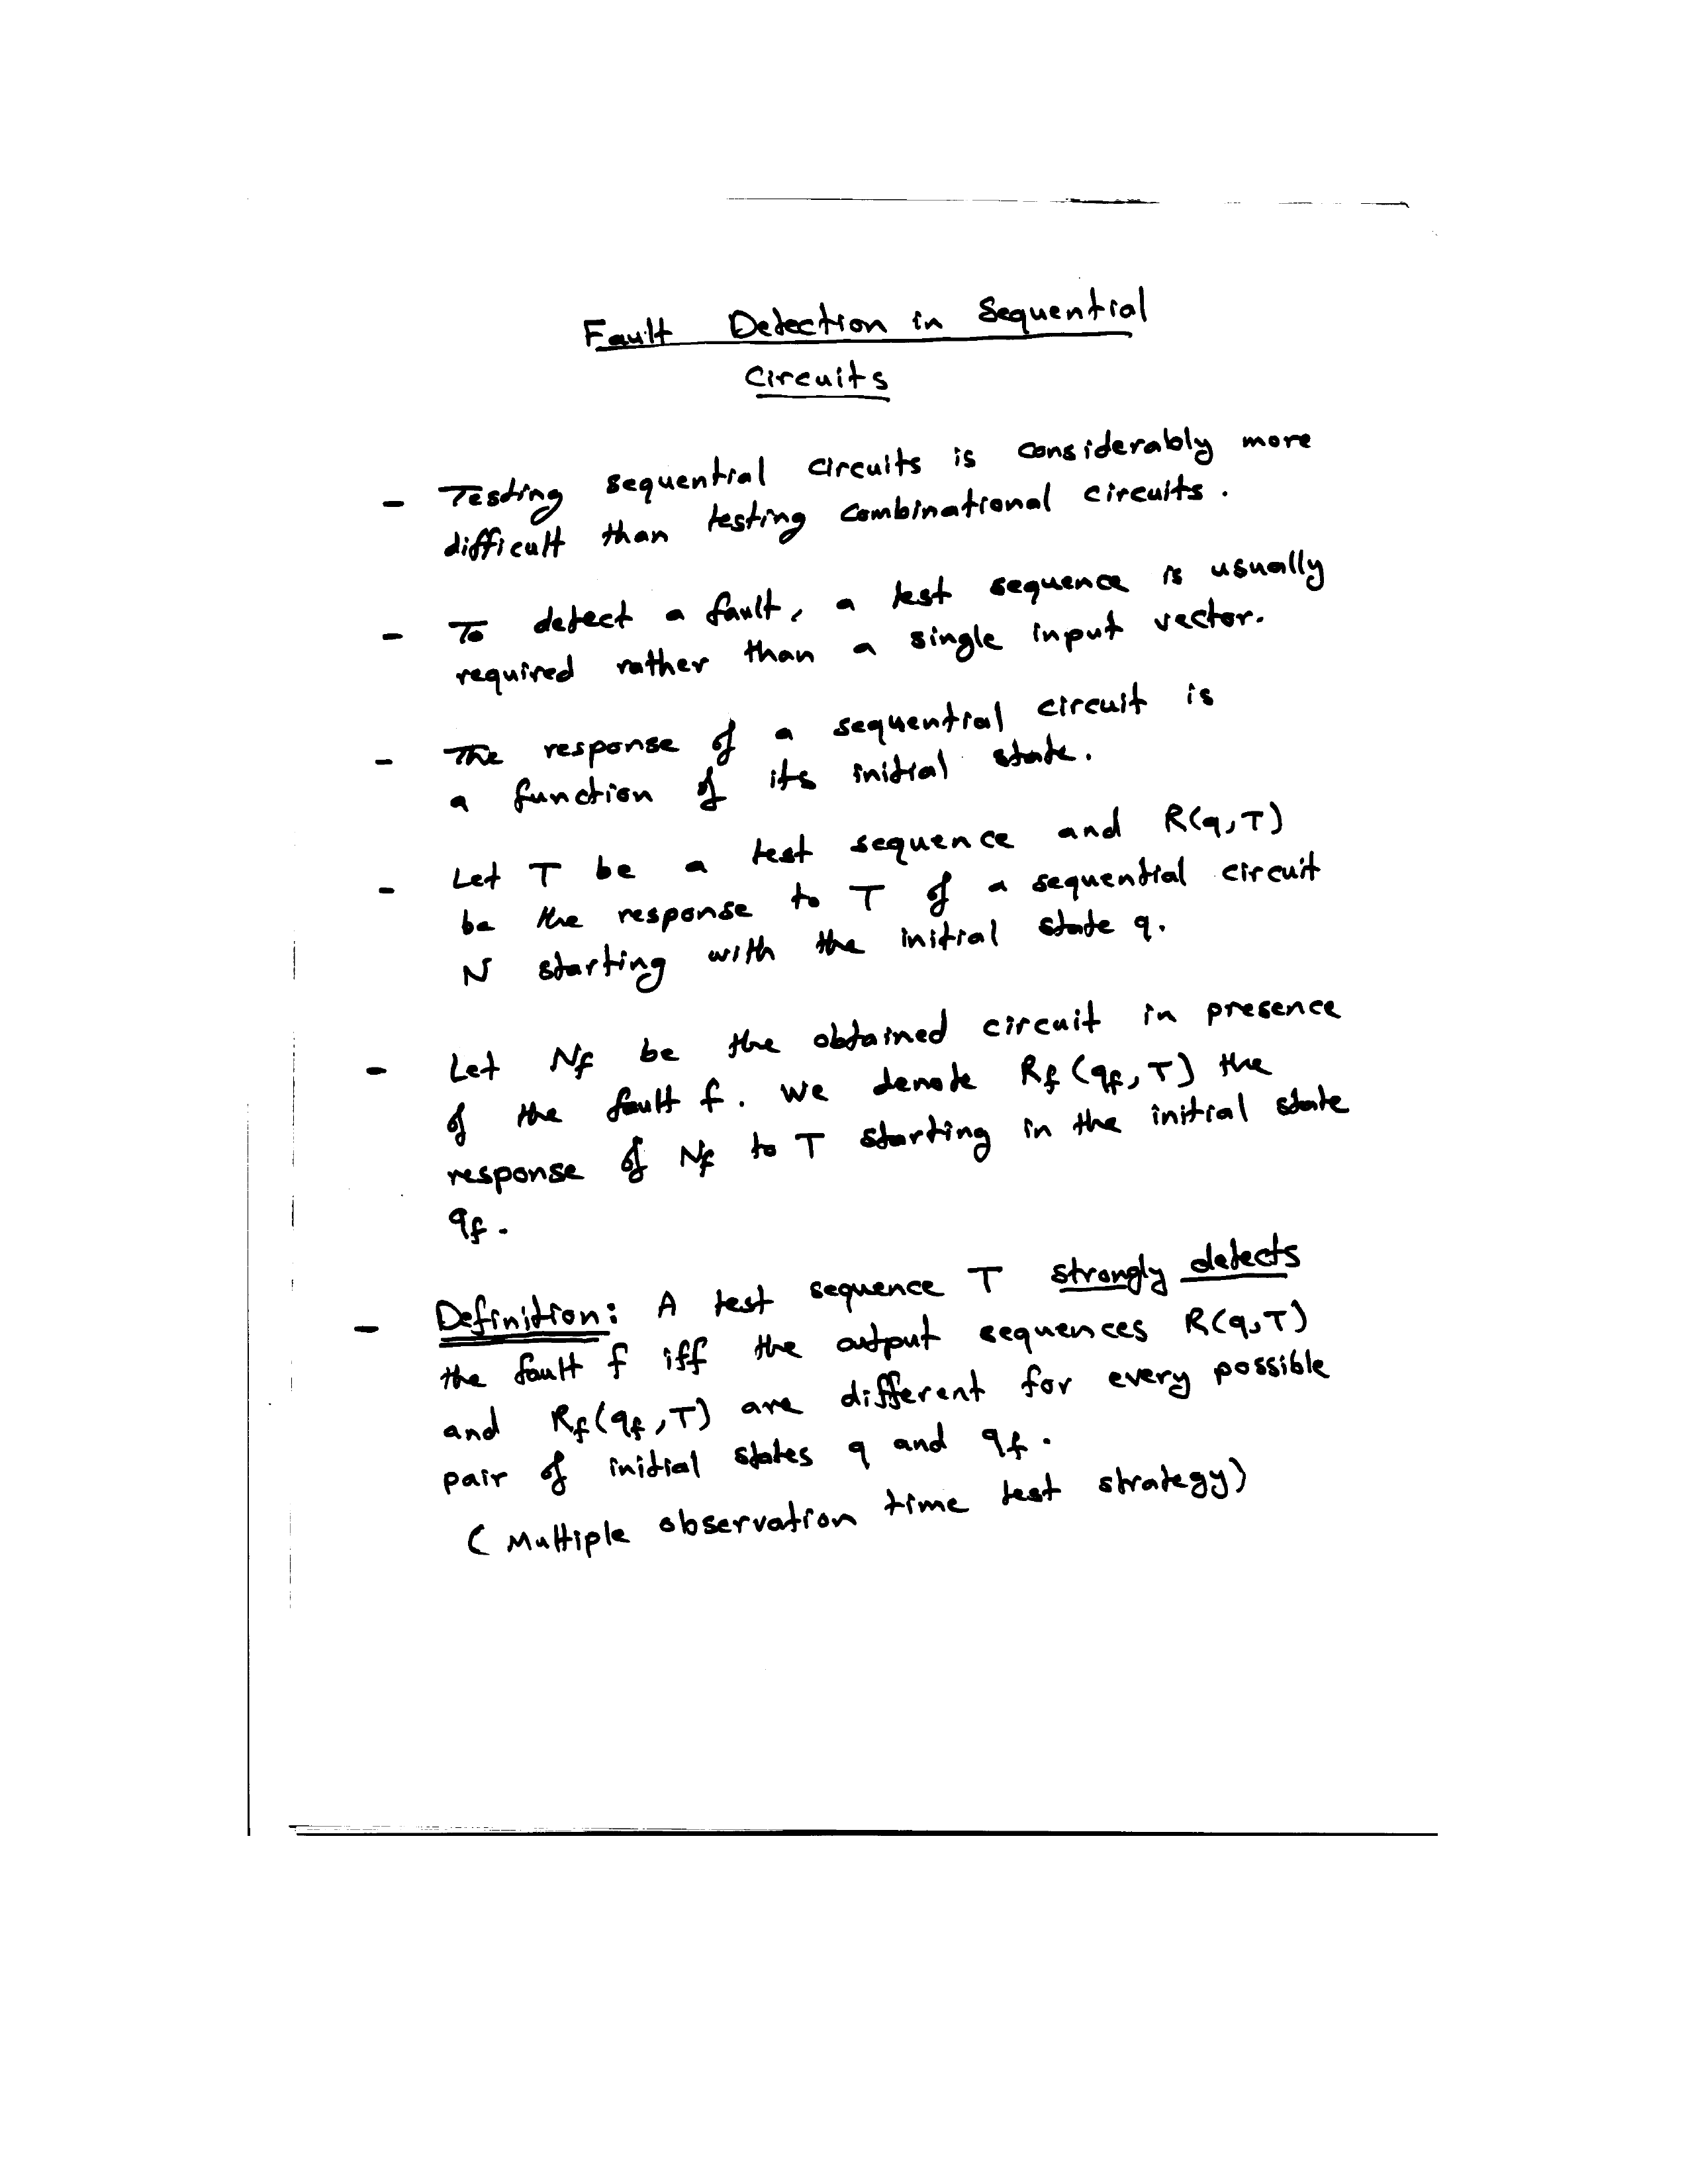 Fault Detection in Sequential
Circuits
- Testing sequential circuits is considerably more
difficult than testing combinational circuits.
- To detect a fault, a test sequence is usually
required rather than a single input vector.
- The response of a sequential circuit is
a function of its initial state.
- Let T be a test sequence and R(q,T)
be the response to T of a sequential circuit
N starting with the initial state q.
- Let Nf be the obtained circuit in presence
of the fault f. We denote Rf(qf,T) the
response of Nf to T starting in the initial state
qf.
- Definition: A test sequence T strongly detects
the fault f iff the output sequences R(q,T)
and Rf(qf,T) are different for every possible
pair of initial states q and qf.
(Multiple observation time test strategy)